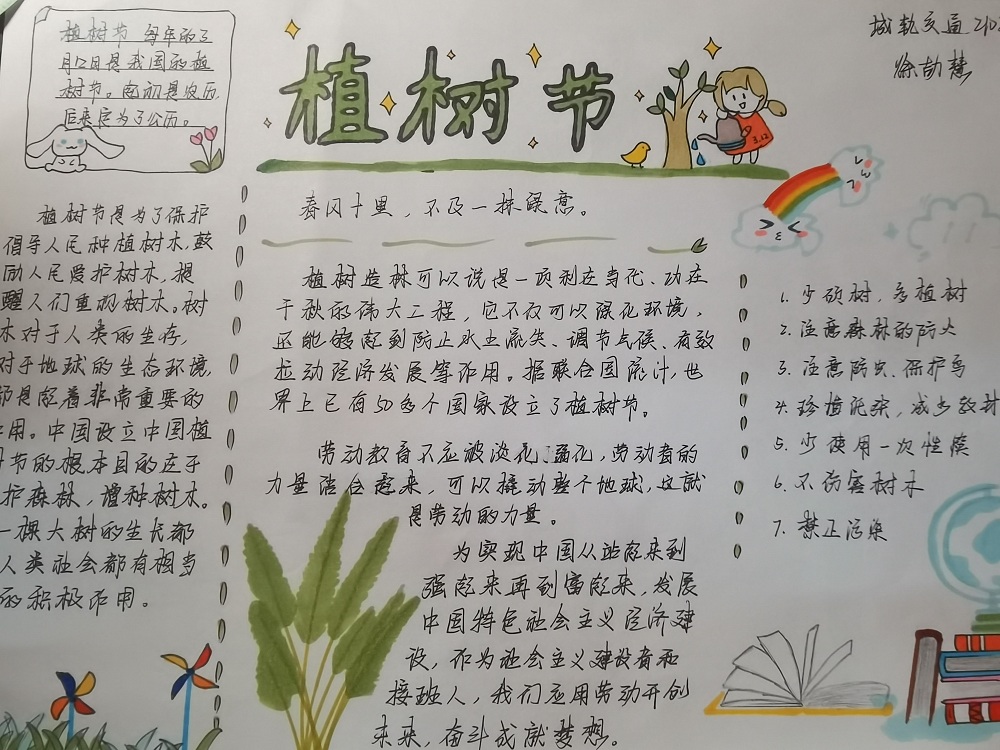 植树节 每年的3
月12日是我国的植
树节。起初是农历,
后来定为了公历。
植树节
3.12
城轨交通
植树节是为了保护
倡导人民种植树木,鼓
励人民爱护树木,提
醒人们重视树木。树
木对于人类的生存,
对于地球的生态环境,
都是起着非常重要的
作用。中国设立中国植
树节的根本目的在于
护森林,增种树木。
一棵大树的生长都
人类社会都有相当
的积极作用。
春风十里,不及一抹绿意。
植树造林可以说是一项利在当代、功在
千秋的伟大工程,它不仅可以强化环境,
还能够起到防止水土流失、调节气候、有效
拉动经济发展等作用。据联合国统计,世
界上已有50多个国家设立了植树节。
劳动教育不应被淡化、弱化,劳动者的
力量结合起来,可以撬动整个地球,这就
是劳动的力量。
为实现中国从站起来到
强起来再到富起来,发展
中国特色社会主义经济建
设,作为社会主义建设者和
接班人,我们应用劳动开创
未来,奋斗成就梦想。
1. 少砍树,多植树
2. 注意森林的防火
3. 注意防虫、保护鸟
4. 珍惜纸张,减少砍树
5. 少使用一次性筷
6. 不伤害树木
7. 禁止污染